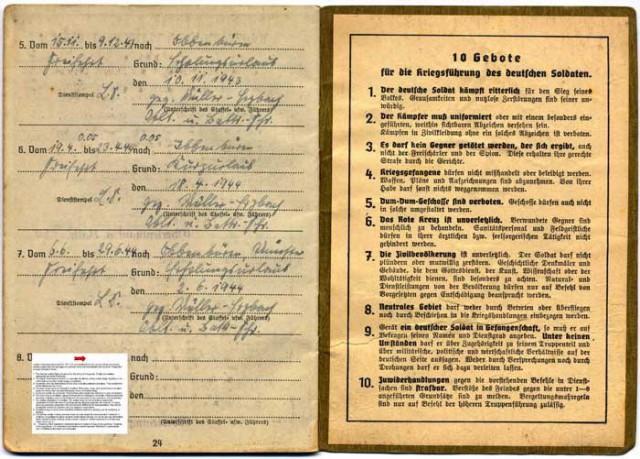 5. Vom 15.11. bis 9.12.43 nach Ibbenbüren
Freifahrt Grund: Erholungsurlaub
den 10. 11. 1943
Dienststempel L.S. gez. Müller-
(Unterschrift des Staffel- usw. Führers)
Oblt. u. Battr.-Fhr.
6. Vom 19.4. 0.05 bis 23.4.44 0.05 nach Ibbenbüren
Freifahrt Grund: Kurzurlaub
den 18. 4. 1944
Dienststempel L.S. gez. Müller-
(Unterschrift des Staffel- usw. Führers)
Oblt. u. Battr.-Fhr.
7. Vom 5.6. bis 29.6.44 nach Ibbenbüren, Münster
Freifahrt Grund: Erholungsurlaub
den 2. 6. 1944
Dienststempel L.S. gez. Müller-
(Unterschrift des Staffel- usw. Führers)
Oblt. u. Battr.-Fhr.
8. nach
Grund:
den
(Unterschrift des Staffel- usw. Führers)
24
10 Gebote
für die Kriegsführung des deutschen Soldaten.
1. Der deutsche Soldat kämpft ritterlich für den Sieg seines
Volkes. Grausamkeiten und nutzlose Zerstörungen sind seiner un-
würdig.
2. Der Kämpfer muß uniformiert oder mit einem besonders ein-
geführten, weithin sichtbaren Abzeichen versehen sein.
Kämpfen in Zivilkleidung ohne ein solches Abzeichen ist verboten.
3. Es darf kein Gegner getötet werden, der sich ergibt, auch
nicht der Freischärler und der Spion. Diese erhalten ihre gerechte
Strafe durch die Gerichte.
4. Kriegsgefangene dürfen nicht mißhandelt oder beleidigt werden.
Waffen, Pläne und Aufzeichnungen sind abzunehmen. Von ihrer
Habe darf sonst nichts weggenommen werden.
5. Dum-Dum-Geschosse sind verboten. Geschosse dürfen auch nicht
in solche umgestaltet werden.
6. Das Rote Kreuz ist unverletzlich. Verwundete Gegner sind
menschlich zu behandeln. Sanitätspersonal und Feldgeistliche
dürfen in ihrer ärztlichen bzw. seelsorgerischen Tätigkeit nicht
gehindert werden.
7. Die Zivilbevölkerung ist unverletzlich. Der Soldat darf nicht
plündern oder mutwillig zerstören. Geschichtliche Denkmäler und
Gebäude, die dem Gottesdienst, der Kunst, Wissenschaft oder der
Wohltätigkeit dienen, sind besonders zu achten. Natural- und
Dienstleistungen von der Bevölkerung dürfen nur auf Befehl von
Vorgesetzten gegen Entschädigung beansprucht werden.
8. Neutrales Gebiet darf weder durch Betreten oder Überfliegen
noch durch Beschießen in die Kriegshandlungen einbezogen werden.
9. Gerät ein deutscher Soldat in Gefangenschaft, so muß er auf
Befragen seinen Namen und Dienstgrad angeben. Unter keinen
Umständen darf er über Zugehörigkeit zu seinem Truppenteil und
über militärische, politische und wirtschaftliche Verhältnisse auf der
deutschen Seite aussagen. Weder durch Versprechungen noch durch
Drohungen darf er sich dazu verleiten lassen.
10. Zuwiderhandlungen gegen die vorstehenden Befehle in Dienst-
sachen sind strafbar. Verstöße des Feindes gegen die unter 1—8
angeführten Grundsätze sind zu melden. Vergeltungsmaßregeln
sind nur auf Befehl der höheren Truppenführung zulässig.